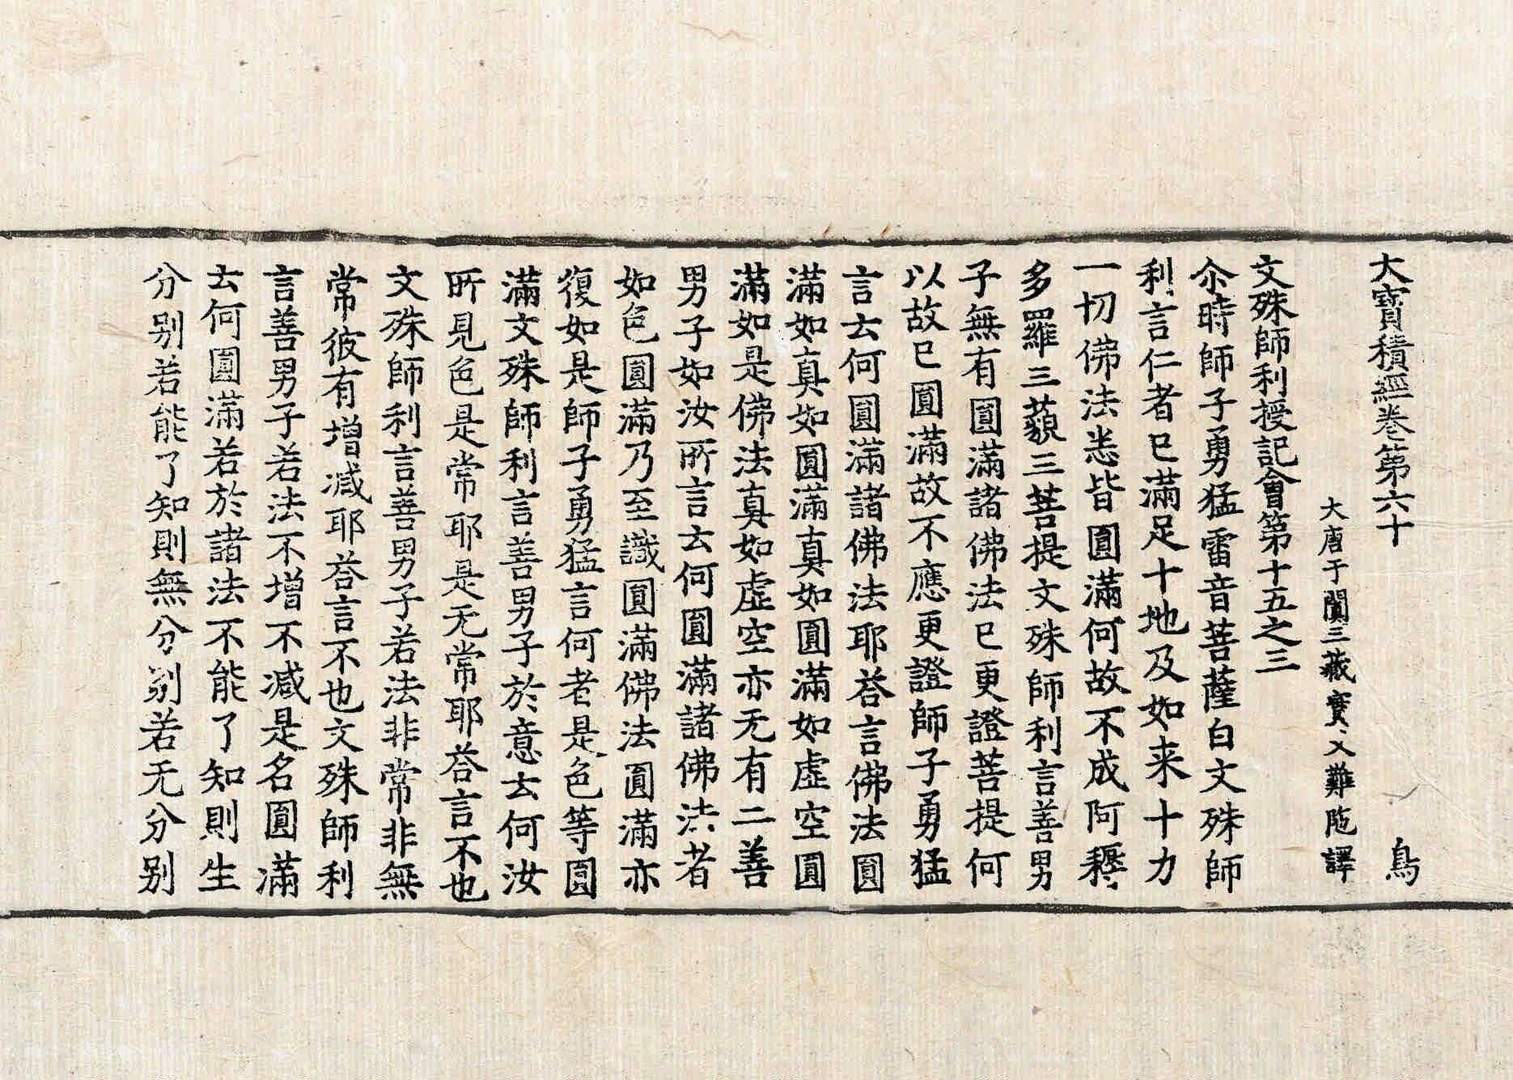 大寶積經卷第六十　鳥
大唐于闐三藏實叉難陁譯
文殊師利授記會第十五之三
尒時師子勇猛雷音菩薩白文殊師
利言仁者已滿足十地及如来十力
一切佛法悉皆圓滿何故不成阿耨
多羅三藐三菩提文殊師利言善男
子無有圓滿諸佛法已更證菩提何
以故已圓滿故不應更證師子勇猛
言云何圓滿諸佛法耶荅言佛法圓
滿如真如圓滿真如圓滿如虛空圓
滿如是佛法真如虛空亦无有二善
男子如汝所言云何圓滿諸佛法者
如色圓滿乃至識圓滿佛法圓滿亦
復如是師子勇猛言何者是色等圓
滿文殊師利言善男子於意云何汝
所見色是常耶是无常耶荅言不也
文殊師利言善男子若法非常非無
常彼有增減耶荅言不也文殊師利
言善男子若法不增不減是名圓滿
云何圓滿若於諸法不能了知則生
分别若能了知則無分别若无分别